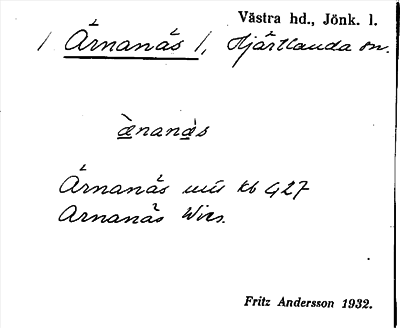 Västra hd., Jönk. l.
/ Årnanås /, Hjärtlanda sn.
ànanàs
Årnanås
Arnanås Wies.
Fritz Andersson 1932.